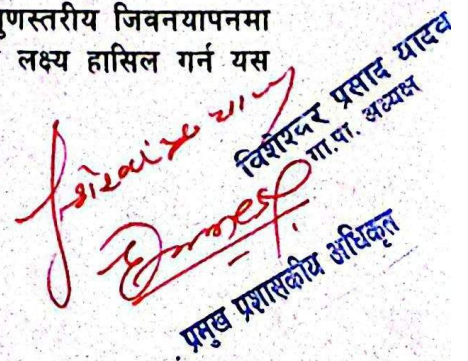 गुणस्तरीय जिवनयापनमा
लक्ष्य हासिल गर्न यस
विशेश्वर प्रसाद यादव
गा.पा. अध्यक्ष
प्रमुख प्रशासकीय अधिकृत